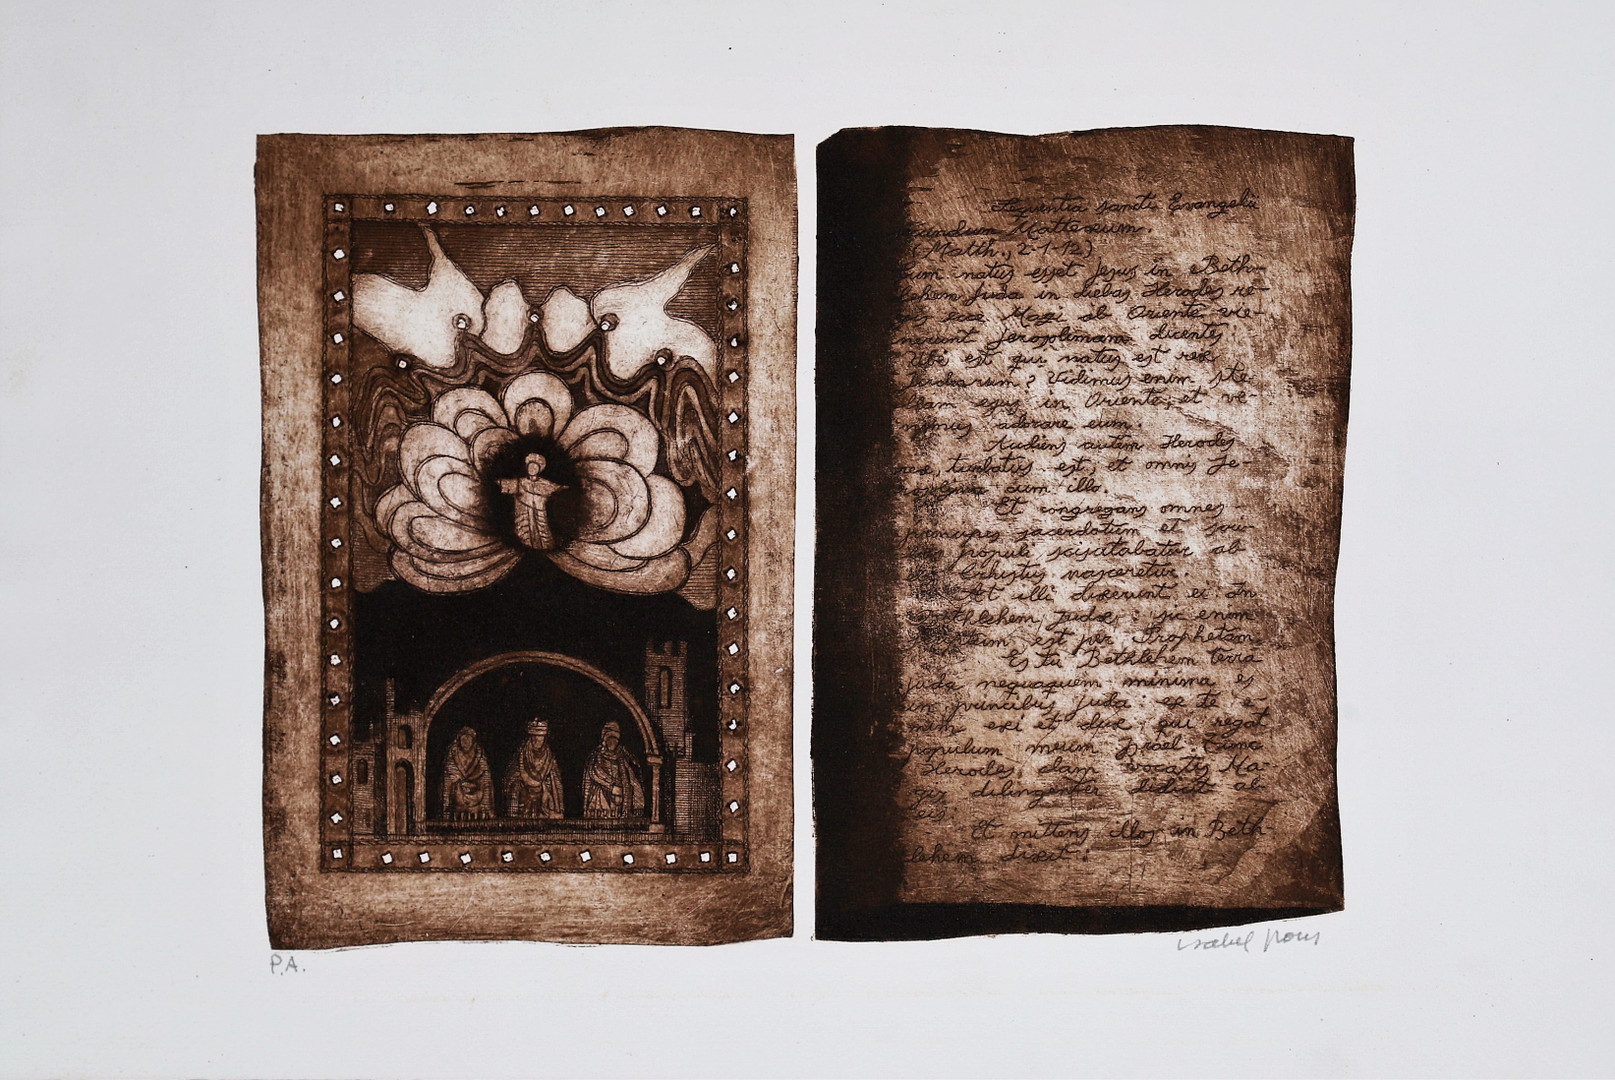 Sequentia sancti Evangelii
secundum Matteum.
(Matth., 2-1-12)
Cum natus esset Jesus in Beth-
lehem Juda in diebus Herodes re-
gis ecce Magi ab Oriente ve-
nerunt Jerosolimam dicentes
Ubi est qui natus est rex
Judearum? Vidimus enim ste-
llam ejus in Oriente, et ve-
nimus adorare eum.
Audiens autem Herodes
rex turbatus est, et omnis Je-
rosolima cum illo.
Et congregans omnes
principes sacerdotum et
populi, ab
Christus nasceretur.
At illi dixerunt ei In
Bethlehem Judae: sic enim
est per Prophetam
Es tu Bethlehem terra
Juda nequaquem minima es
in Juda ex te e-
nim exi et dux qui regat
populum meum Israel. Tunc
Herodes, clam vocatis Ma-
gis dilingenter didicit ab
eis
Et mittens illos in Beth-
lehem dixit:
P.A.
isabel pons